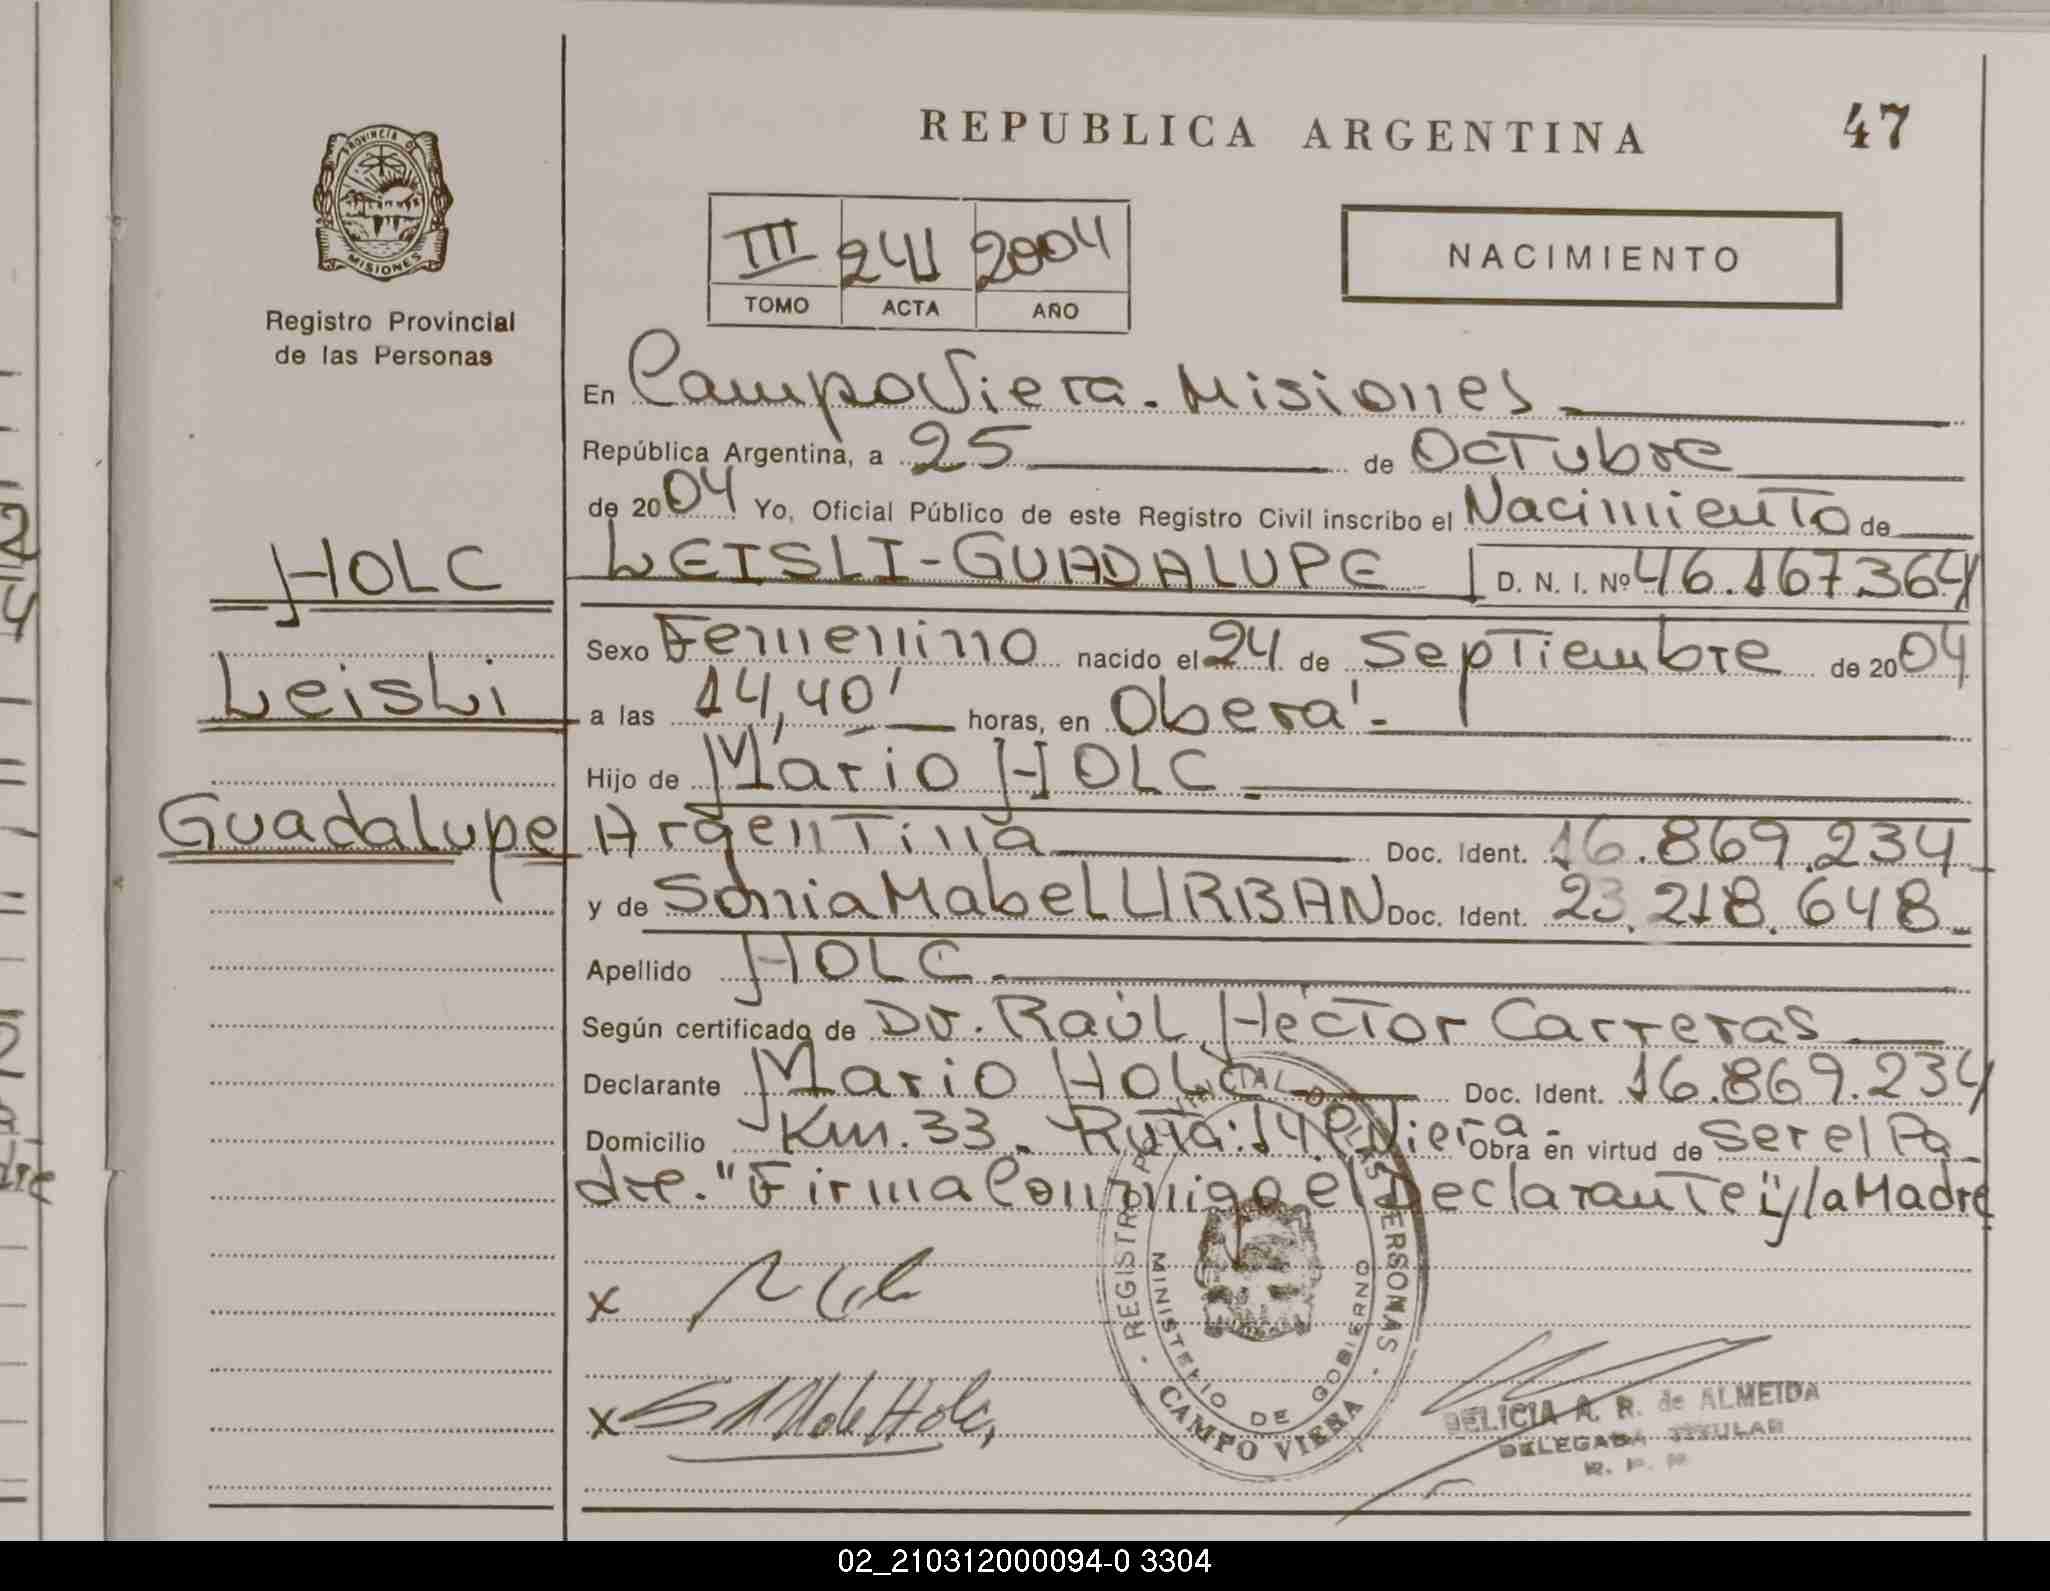 REPUBLICA ARGENTINA
47
PROVINCIA DE
MISIONES
Registro Provincial
de las Personas
III 241 2004
TOMO ACTA AÑO
NACIMIENTO
En Campo Viera. Misiones
República Argentina, a 25 de Octubre
de 2004 Yo, Oficial Público de este Registro Civil inscribo el Nacimiento de
LEISLI-GUADALUPE D. N. I. Nº 46.167364
HOLC
Leisli
Guadalupe
Sexo Femenino nacido el 24 de Septiembre de 2004
a las 14,40' horas, en Oberá.-
Hijo de Mario HOLC
Argentina Doc. Ident. 16.869.234
y de Sonia Mabel URBAN Doc. Ident. 23.218.648
Apellido HOLC
Según certificado de Dr. Raúl Héctor Carreras
Declarante Mario Holc Doc. Ident. 16.869.234
Domicilio Km. 33. Ruta: 14. C. Viera - Obra en virtud de ser el Pa
dre. "Firma Conmigo el Declarante" y la Madre
x
x
REGISTRO PROVINCIAL DE LAS PERSONAS
MINISTERIO DE GOBIERNO
CAMPO VIERA
DELICIA A. R. de ALMEIDA
DELEGADA TITULAR
R. P. P.
02_210312000094-0 3304